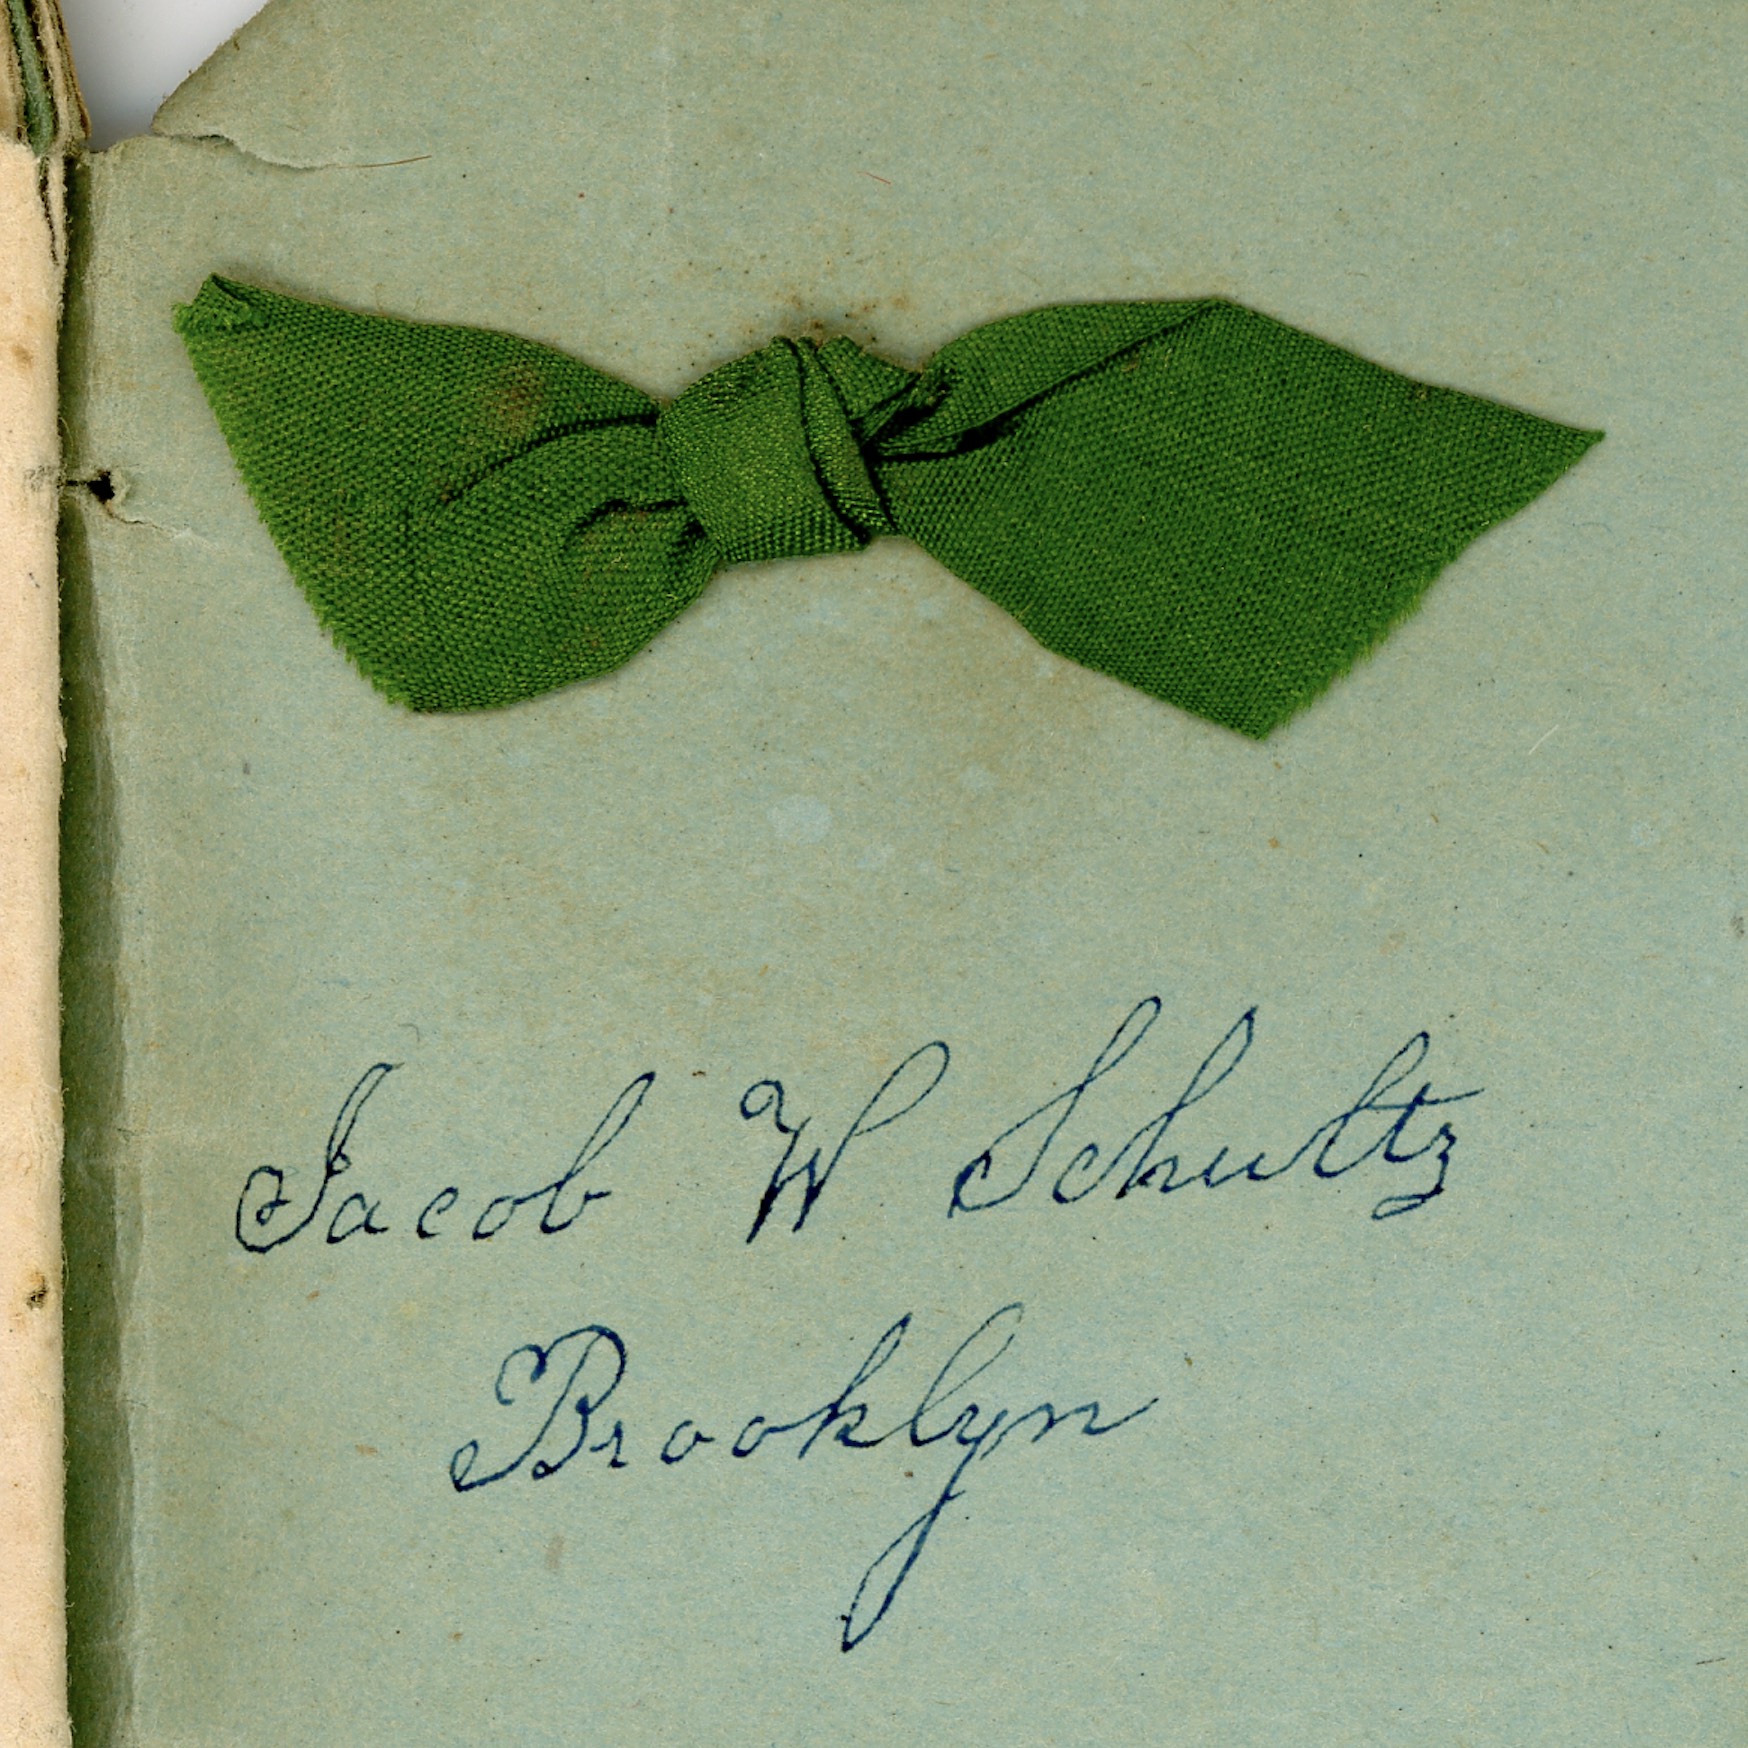 Jacob W Schultz
Brooklyn